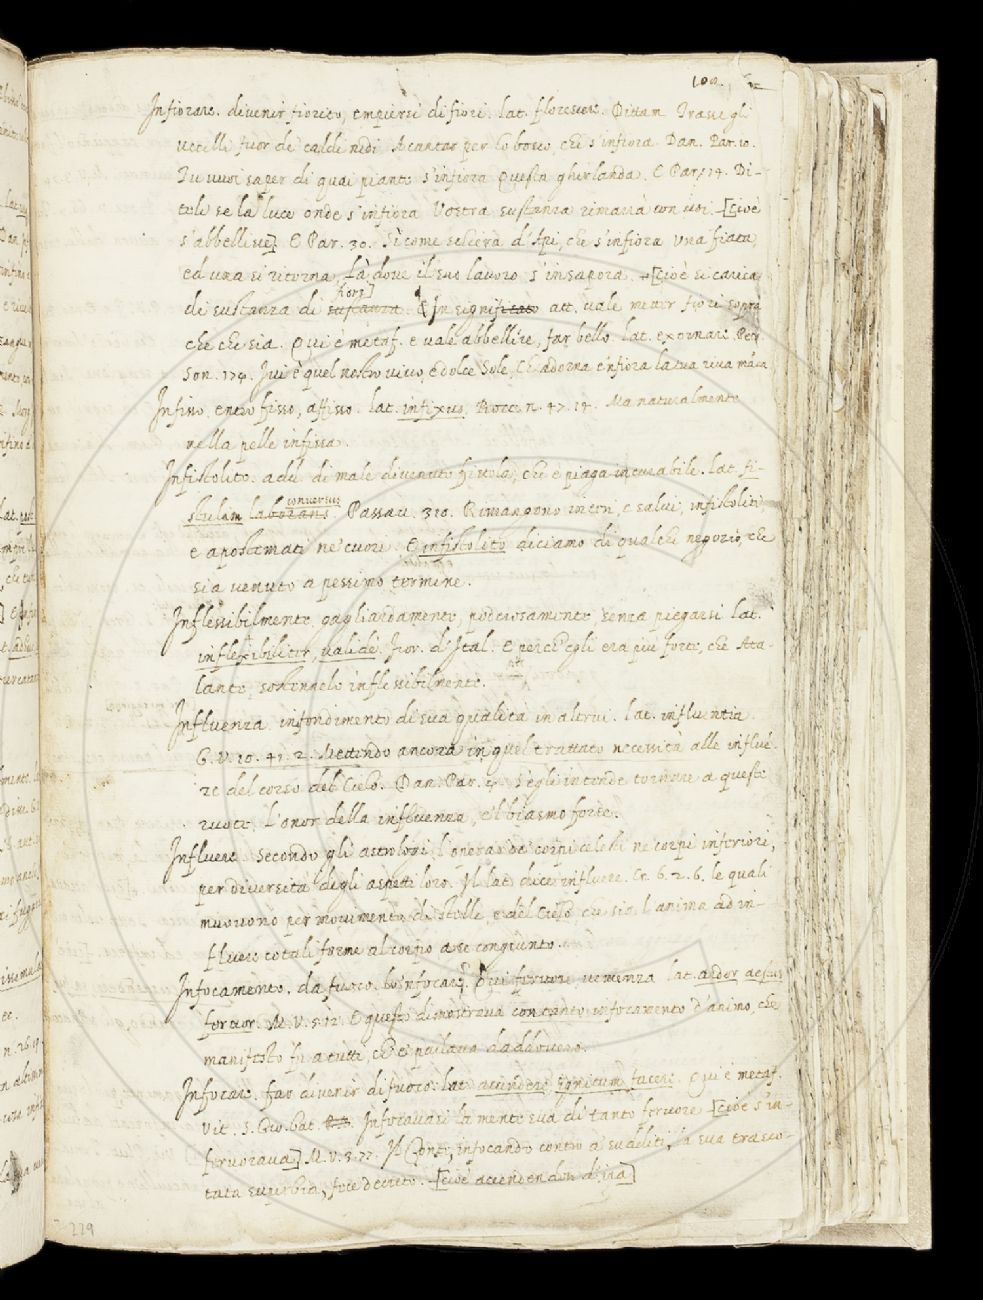 100.
Infiorare. divenir fiorito, empiersi di fiori. lat. florescere. Dittam. Trasse gli
uccelli fuor de caldi nidi A cantar per lo bosco, che s'infiora. Dan. Par. 10.
Tu vuoi saper di quai piante s'infiora Questa ghirlanda. E Par. 14. Di-
tele se la luce onde s'infiora Vostra sustanza rimarrà con voi. [cioè
s'abbellisce] E Par. 30. Sì come schiera d'Api, che s'infiora una fiata,
ed una si ritorna, Là dove il suo lavoro s'insapora. [cioè si carica
fiori]
di sustanza di sustanza. E In significato att. vale metter fiori sopra
che che sia. Qui è metaf. e vale abbellire, far bello. lat. exornare. Petr.
Son. 174. Ivi è quel nostro vivo, e dolce Sole, Ch'adorna e'nfiora la tua riva manca
Infisso, entro fisso, affisso. lat. infixus. Bocc. n. 47. 14. Ma naturalmente
nella pelle infissa.
Infistolito. add. di male divenuto fistola, che è piaga incurabile. lat. fi-
conversus
stulam laborans. Passav. 310. Rimangono interi, e salvi, infistoliti,
e apostemati ne' cuori. E infistolito diciamo di qualche negozio, che
sia venuto a pessimo termine.
Inflessibilmente, gagliardamente, poderosamente, senza piegarsi. lat.
inflexibiliter, valide. Fior. d'Ital. E perch'egli era più forte, che Ata-
lante, sostennelo inflessibilmente.
Influenza. infondimento di sua qualità in altrui. lat. influentia.
G. V. 10. 41. 2. Mettendo ancora in quel trattato necessità alle influé-
ze del corso del Cielo. Dan. Par. 4. S'egli intende tornare a queste
ruote, L'onor della influenza, e'l biasmo forse.
Influere. Secondo gli astrologi l'operar de' corpi celesti ne' corpi inferiori,
per diversità degli aspetti loro. Il lat. dice influere. Cr. 6. 2. 6. le quali
muovono per movimento di stelle, e del Cielo che sia l'anima ad in-
fluere cotali forme al corpo a se congiunto.
Infocamento. da fuoco. lo'nfocare. Qui fervore, veemenza. lat. ardor aestus
fervor. M. V. 5. 12. E questo dimostrava con tanto infocamento d'animo, che
manifesto fu a tutti, ch'e' parlava daddovero.
Infocare. far divenir di fuoco. lat. accendere ignitum facere. Qui è metaf.
Vit. S. Gio. bat. Infocavasi la mente sua di tanto fervore [cioè s'in-
fervorava] M. V. 3. 77. Il Conte, infocando contro a' sudditi, la sua tracco-
tata superbia, fece decreto. [cioè accendendosi d'ira]
229